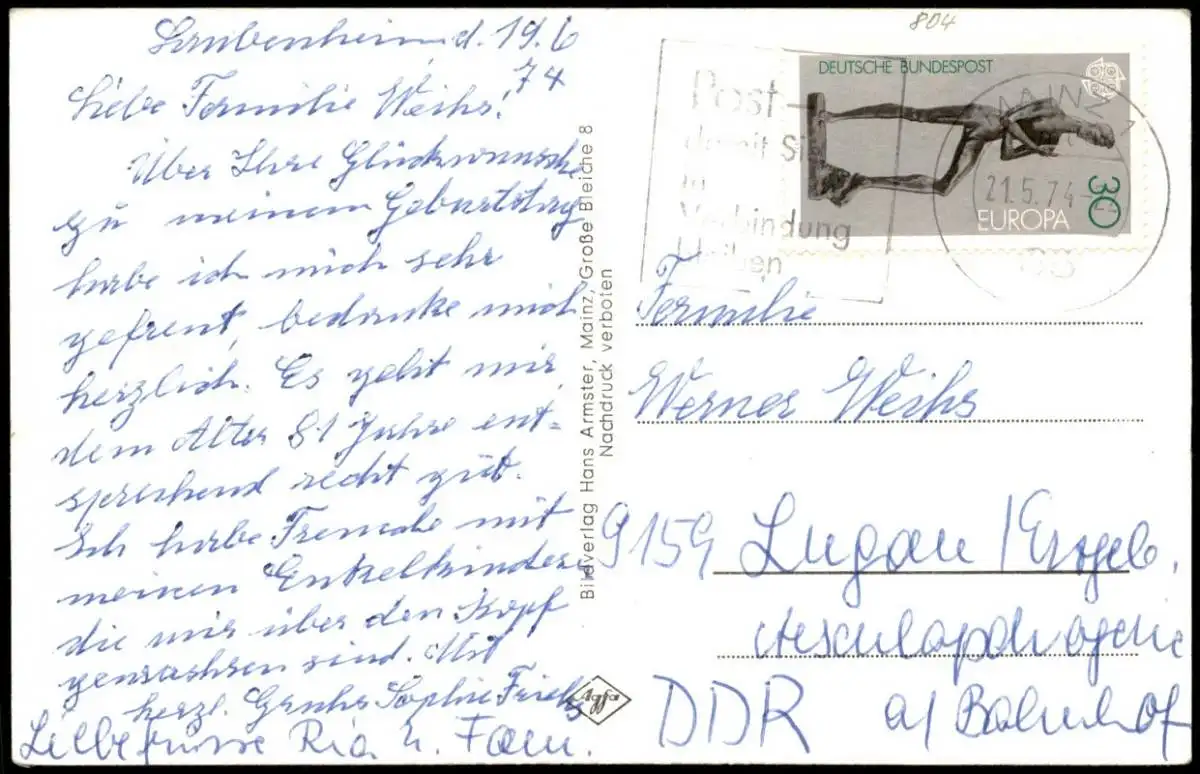 804
Laubenheim d. 19.6
74
Liebe Familie Weihs!
Über Ihre Glückwünsche
zu meinem Geburtstag
habe ich mich sehr
gefreut, bedanke mich
herzlich. Es geht mir
dem Alter 81 Jahre ent=
sprechend recht gut.
Ich habe Freude mit
meinen Enkelkinder
die mir über den Kopf
gewachsen sind. Mit
herzl. Gruhs Sophie
Liebe Grüsse Ria u. Fam.
Bildverlag Hans Armster, Mainz, Große Bleiche 8
Nachdruck verboten
Agfa
Post -
damit Sie
in
Verbindung
bleiben
DEUTSCHE BUNDESPOST
EUROPA
30
MAINZ 1
21.5.74-22
Familie
Werner Weihs
9159 Lugau / Erzgeb.
Aeskulapdrogerie
DDR a/ Bahnhof